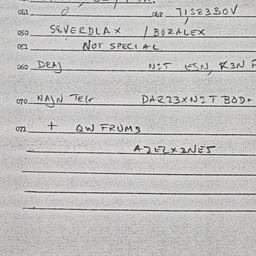 041 0 042 71S83BOV
050 SEVERDLAX / BORALEX
052 NOT SPECIAL
060 DRAJ NIT ESN, R3N F
070 NAJN TELR DAR23XNIT BOD+
072 + QW FRUMS
A7ELX2NES